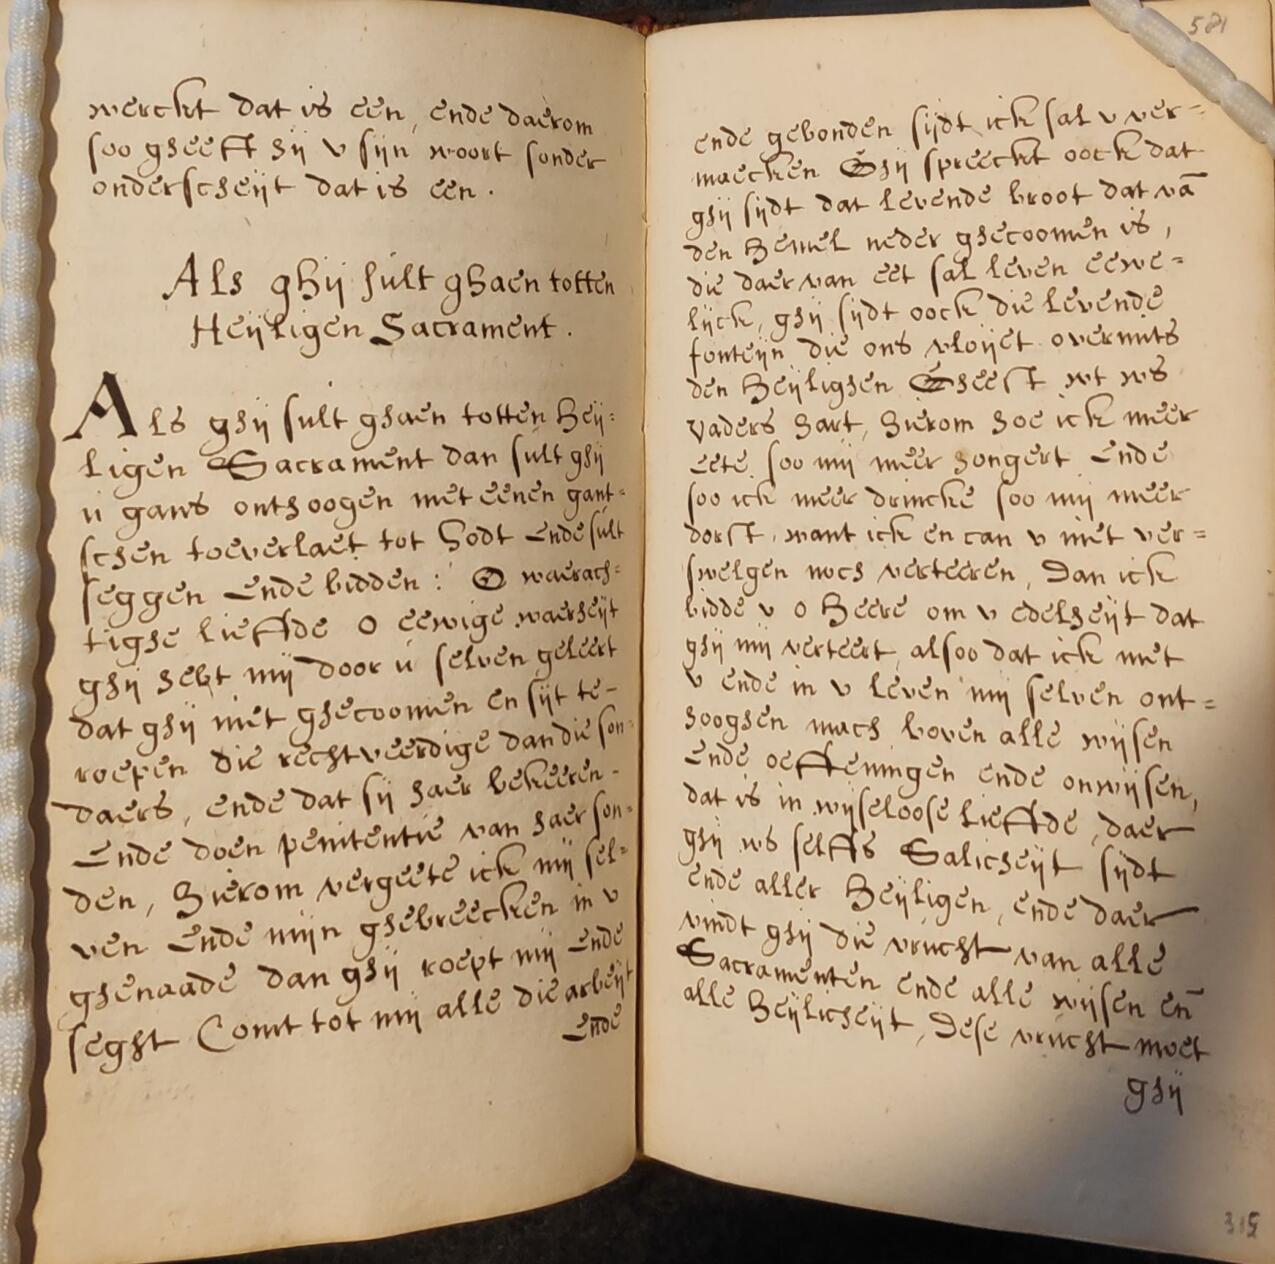 werckt dat is een, ende daerom
soo gheeft hij v sijn woort sonder
onderscheijt dat is een.
Als ghij súlt ghaen totten
Heijligen Sacrament.
Als ghij sult ghaen totten Heij=
ligen Sacrament dan súlt ghij
ú gans onthoogen met eenen gant=
schen toeverlaet tot Godt Ende súlt
seggen Ende bidden: O waerach=
tighe liefde O eewige waerheijt
ghij hebt mij door ú selven geleert
dat ghij niet ghecoomen en sijt te-
roepen die rechtveerdige dan die son=
daers, ende dat sij haer bekeeren-
Ende doen penitentie van haer son=
den, Hierom vergeete ick mij sel=
ven Ende mijn ghebreecken in v
ghenaade dan ghij roept mij Ende
seght Comt tot mij alle die arbeijt
Ende
581
ende gebonden sijdt ick sal v ver=
maecken Ghij spreeckt oock dat
ghij sijdt dat levende broot dat vā
den Hemel neder ghecoomen is,
die daer van eet sal leven eewe=
lijck, ghij sijdt oock die levende
fonteijn die ons vloijet overmits
den Heijlighen Gheest wt ws
vaders hart, hierom hoe ick meer
Eete soo mij meer hongert Ende
soo ick meer drincke soo mij meer
dorst, want ick en can v niet ver=
swelgen noch verteeren, Dan ick
bidde v o Heere om v edelheijt dat
ghij mij verteert, alsoo dat ick met
v ende in v leven mij selven ont=
hooghen mach boven alle wijsen
Ende oeffeningen ende onwijsen,
dat is in wijseloose liefde, daer
ghij ws selfs Salicheijt sijdt
ende aller Heijligen, ende daer
vindt ghij die vrúcht van alle
Sacramenten ende alle wijsen en̄
alle Heijlicheijt, Dese vrúcht moet
ghij
315